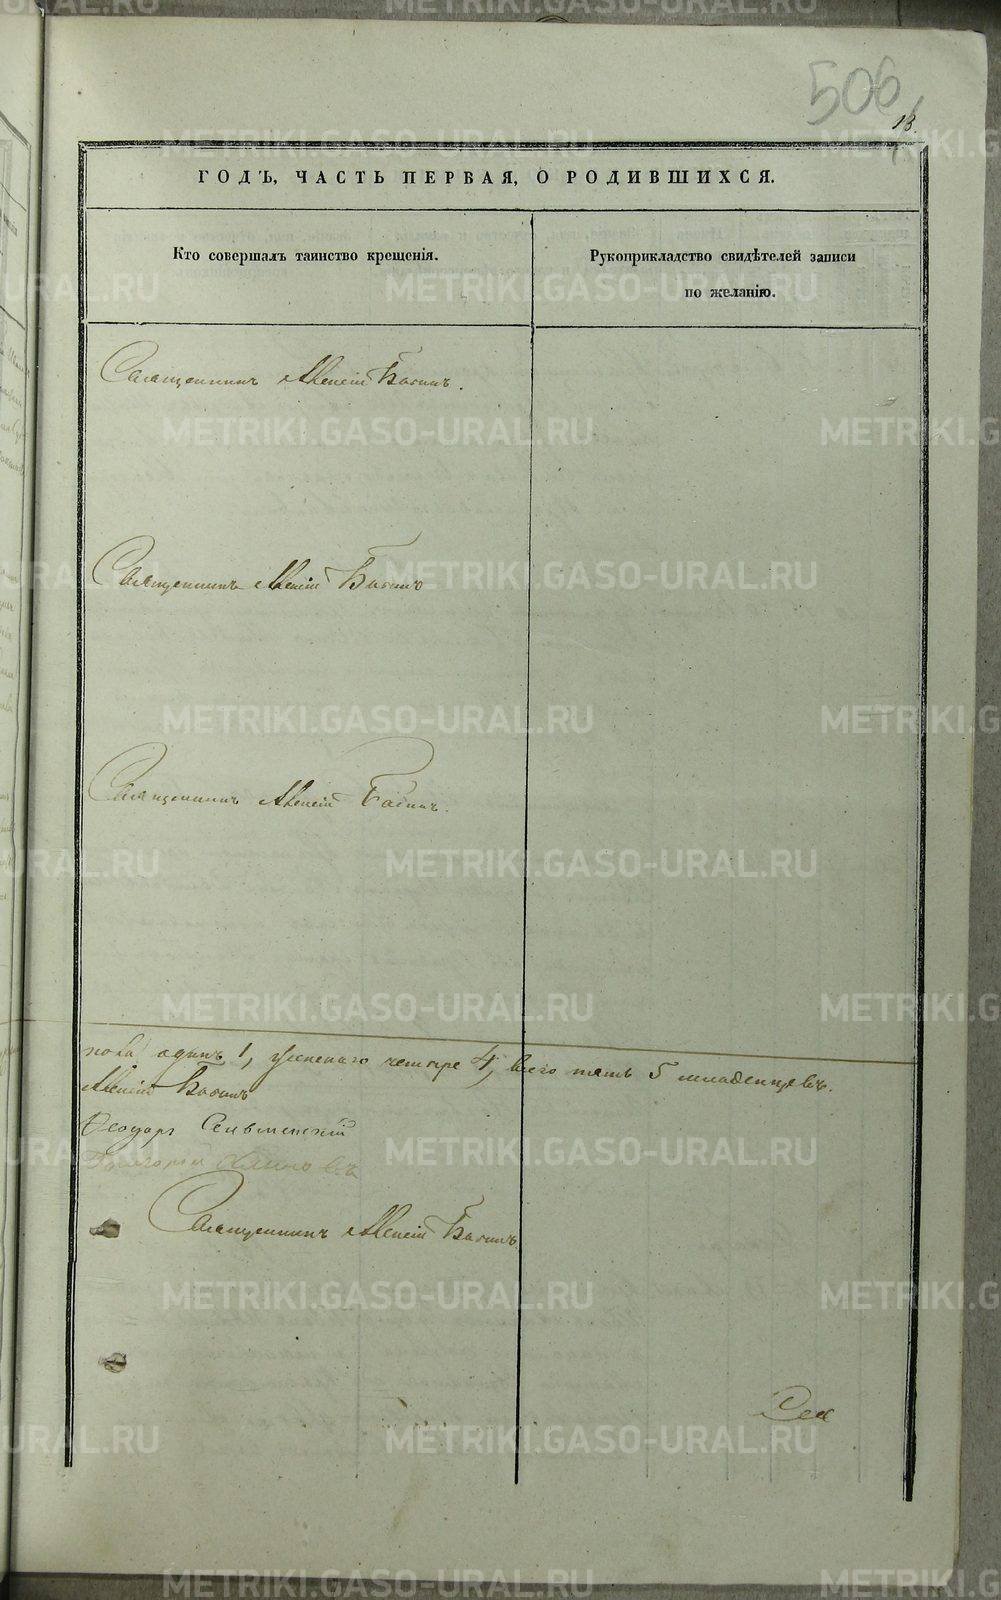 506
13.
ГОДЪ, ЧАСТЬ ПЕРВАЯ, О РОДИВШИХСЯ.
Кто совершалъ таинство крещенія.
Рукоприкладство свидѣтелей записи
по желанію.
Священникъ Алексій Бабинъ.
Священникъ Алексій Бабинъ
Священникъ Алексій Бабинъ.
пола одинъ 1, женскаго четыре 4, всего пять 5 младенцевъ.
Алексій Бабинъ
Ѳеодоръ
Григорій
Священникъ Алексій Бабинъ.
METRIKI.GASO-URAL.RU